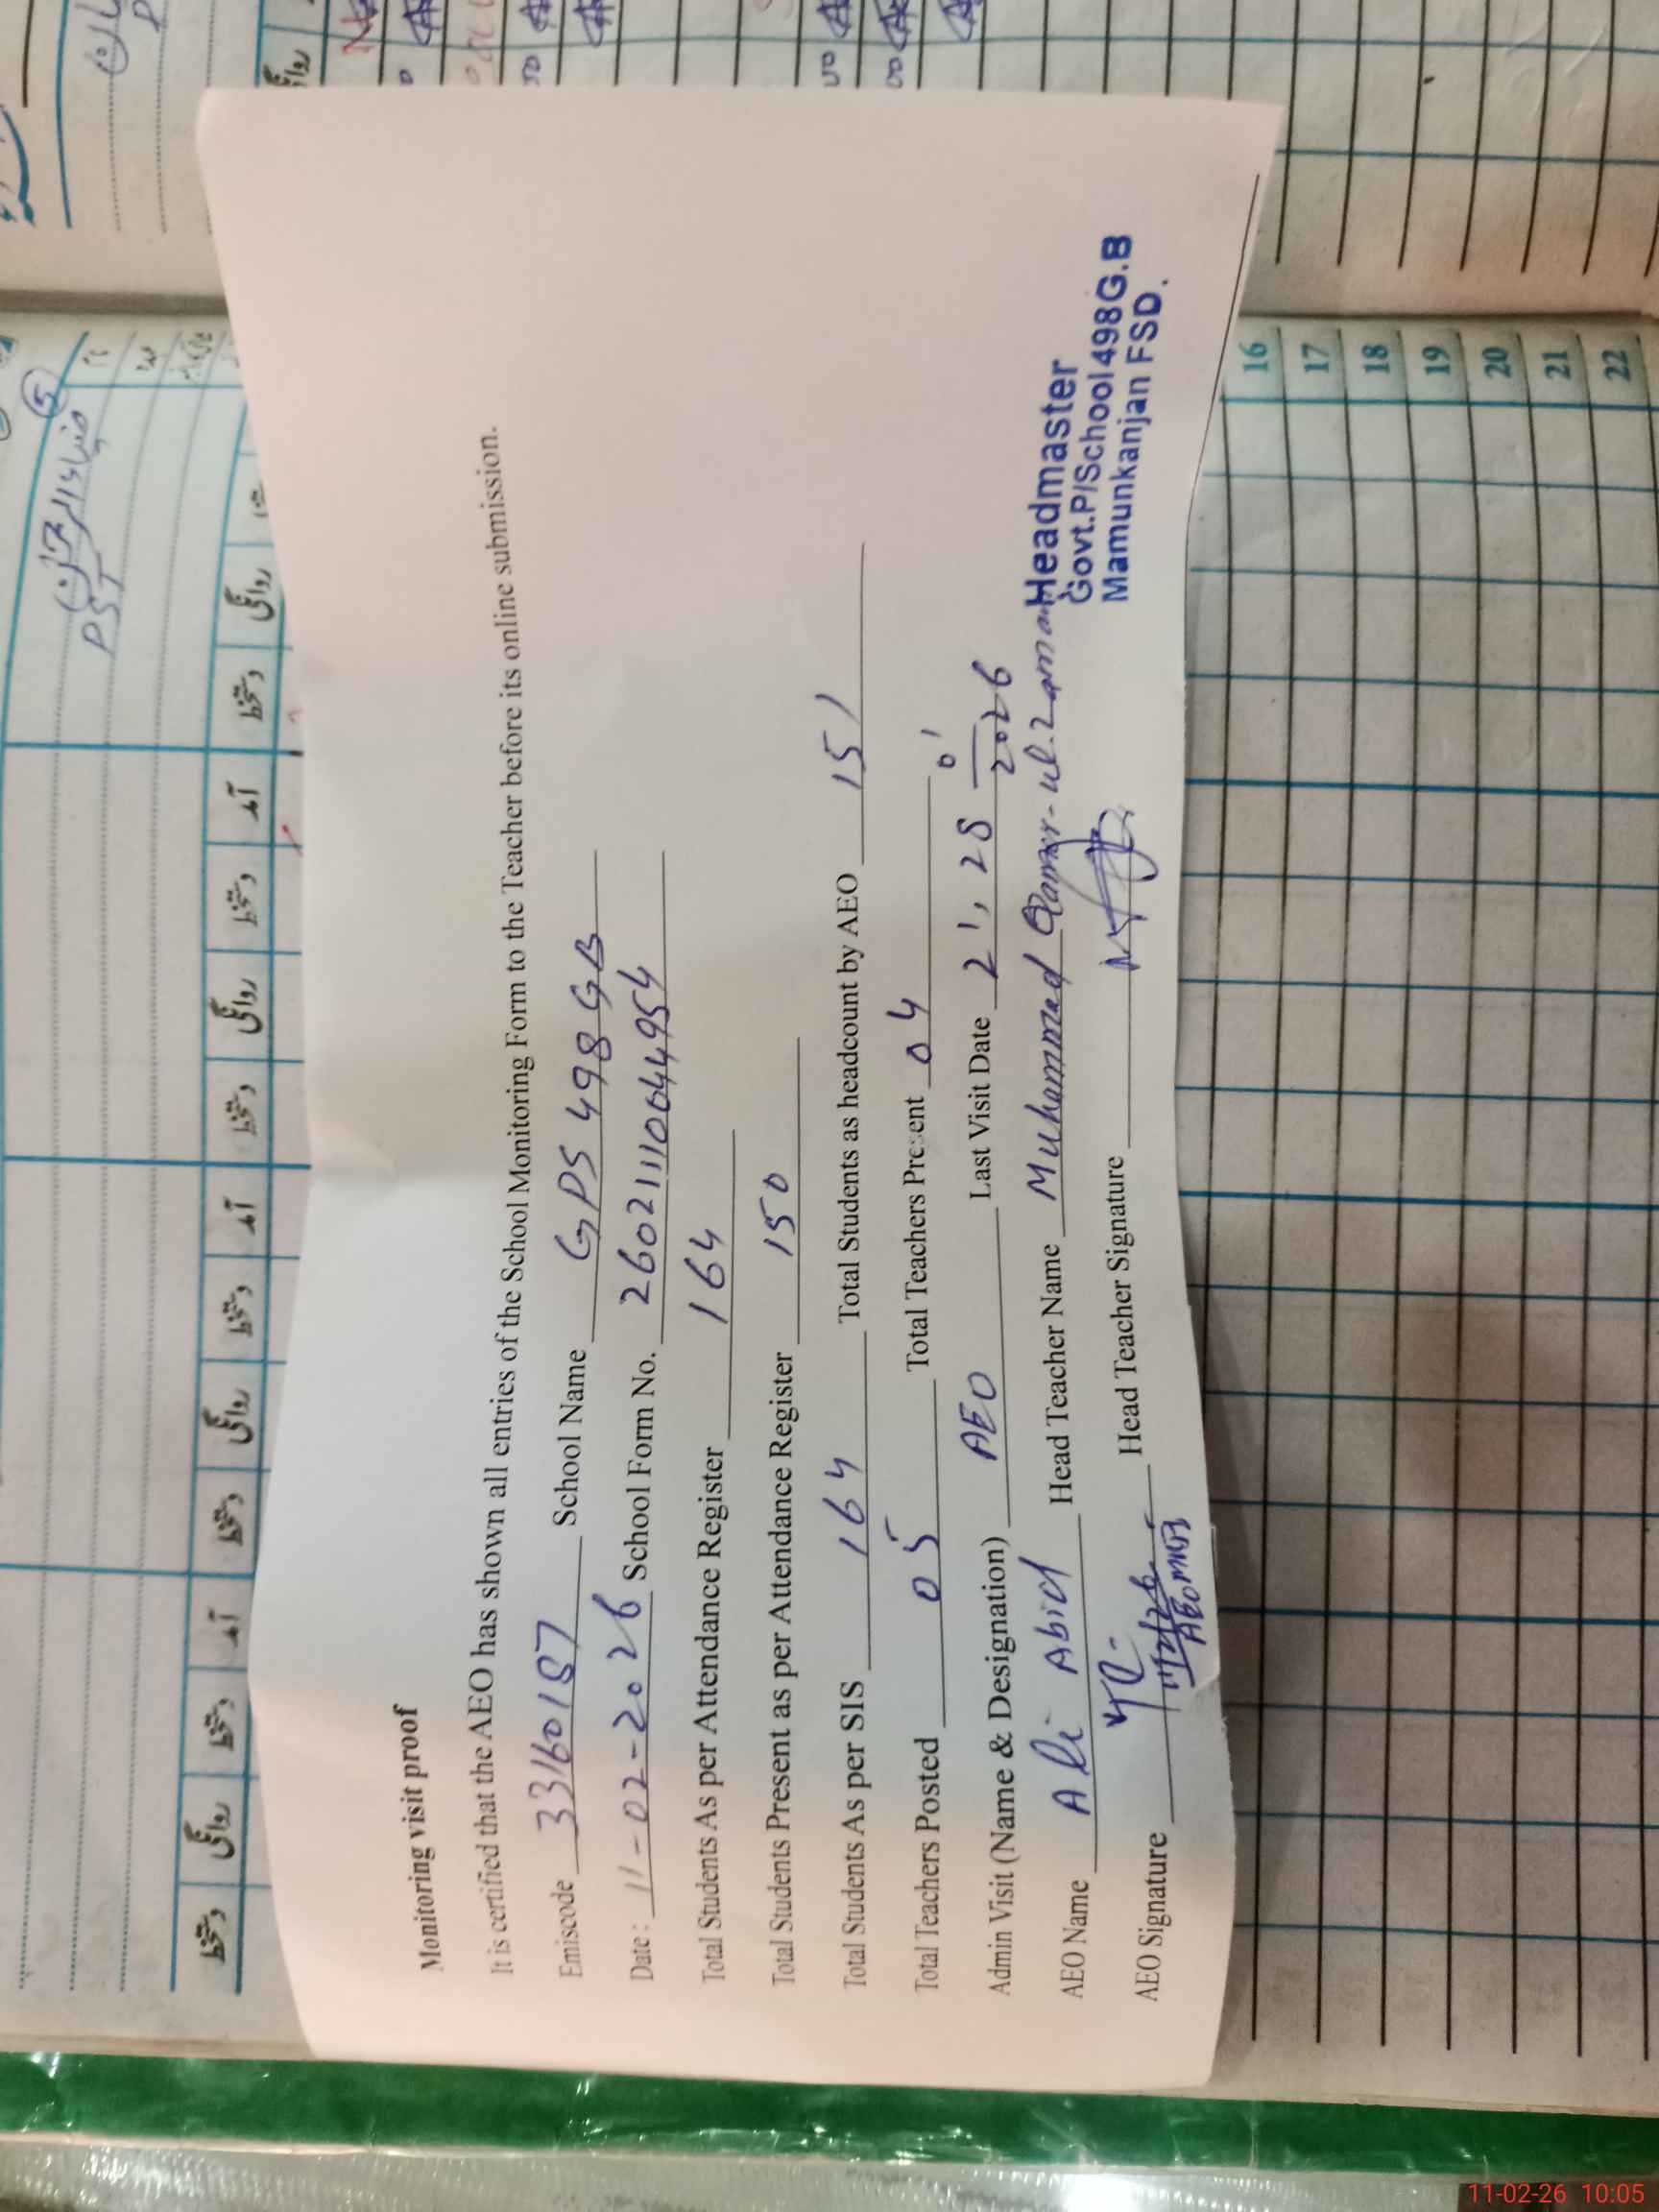 Monitoring visit proof
It is certified that the AEO has shown all entries of the School Monitoring Form to the Teacher before its online submission.
Emiscode 33160187 School Name GPS 498 GB
Date: 11-02-2026 School Form No. 26021110044954
Total Students As per Attendance Register 164
Total Students Present as per Attendance Register 150
Total Students As per SIS 164 Total Students as headcount by AEO 151
Total Teachers Posted 05 Total Teachers Present 04
Admin Visit (Name & Designation) AEO Last Visit Date 21, 28 01/2026
AEO Name Ali Abid Head Teacher Name Muhammad Qamar-ul-Zaman
AEO Signature Head Teacher Signature
Headmaster
Govt.P/School 498G.B
Mamunkanjan FSD.
ضیاءالرحمٰن
PST
5
نام
عہدہ
دستخط روانگی دستخط آمد دستخط روانگی دستخط آمد دستخط روانگی دستخط آمد دستخط روانگی
16
17
18
19
20
21
22
11-02-26 10:05